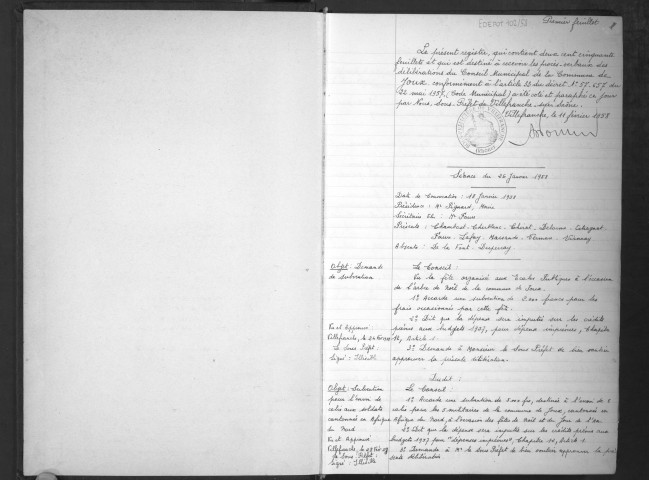 EDEPOT 102/52
Premier feuillet
Le présent registre, qui contient deux cent cinquante
feuillets et qui est destiné à recevoir les procès-verbaux des
délibérations du Conseil Municipal de la Commune de
Joux, conformément à l'article 33 du décret N° 57.657 du
22 mai 1957 (Code Municipal) a été coté et paraphé ce jour
par Nous, Sous-Préfet de Villefranche-sur-Saône.
Villefranche, le 11 février 1958
Séance du 26 Janvier 1958
Date de Convocation : 18 Janvier 1958
Président : Mr Pignard, Maire
Secrétaire Elu : Mr
Présents : Chambost
Lafay
Absents : De la Font
Objet : Demande
de Subvention
Le Conseil :
Vu la fête organisée aux Ecoles Publiques à l'occasion
de l'arbre de Noël de la commune de Joux.
1° Accorde une subvention de francs pour les
frais occasionnés par cette fête.
2° Dit que la dépense sera imputée sur les crédits
Vu et Approuvé
prévus aux budgets 1957, pour dépenses imprévues, Chapitre
Villefranche, le
Article 1.
Le Sous Préfet
3° Demande à Monsieur le Sous Préfet de bien vouloir
Signé : Illisible
approuver la présente délibération.
Dudit :
Objet : Subvention
Le Conseil :
pour l'envoi de
1° Accorde une subvention de frs, destinée à l'envoi de
colis aux soldats
colis pour les militaires de la commune de Joux,
cantonnés en Afrique
Afrique du Nord, à l'occasion des fêtes de Noël et du Jour de l'An.
du Nord
2° Dit que la dépense sera imputée sur les crédits prévus aux
Vu et Approuvé
budgets 1957 pour "dépenses imprévues", Chapitre Article 1.
Villefranche, le
3° Demande à Mr le Sous Préfet de bien vouloir approuver la
le Sous Préfet :
délibération
Signé : Illisible